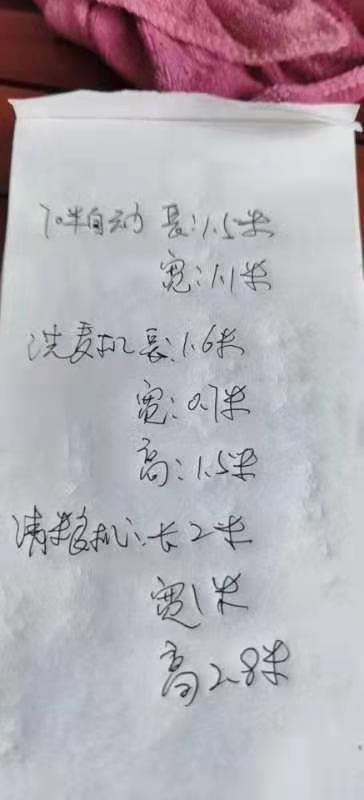 70半自动 長:1.5米
宽:1.1米
洗麦机長:1.6米
宽:0.7米
高:1.5米
清粮机:长2米
宽1米
高2.8米